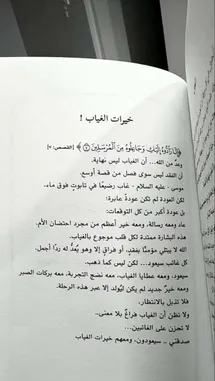 خيرات الغياب !
﴿إِنَّا رَادُّوهُ إِلَيْكِ وَجَاعِلُوهُ مِنَ الْمُرْسَلِينَ﴾ [القصص: ٧]
وعدٌ من الله... أن الغياب ليس نهاية.
أن الفقد ليس سوى فصل من قصة أوسع.
موسى - عليه السلام - غاب رضيعًا في تابوت فوق ماء،
لكن العودة لم تكن عودة عابرة؛
بل عودة أكبر من كل التوقعات:
عاد ومعه رسالة، ومعه خير أعظم من مجرد احتضان الأم.
هذه البشارة ممتدة لكل قلب موجوع بالغياب.
الله لا يبتلي مؤمنًا بفقدٍ، أو فراقٍ إلا وهو يَعدُّ له ردًا أجمل.
كل غائب سيعود... لكن ليس كما ذهب.
سيعود، ومعه عطايا الغياب، معه نضج التجربة، معه بركات الصبر
ومعه خيرٌ جديد لم يكن ليُولد إلا عبر هذه الرحلة.
فلا تذبل بالانتظار،
ولا تظن أن الغياب فراغٌ بلا معنى..
لا تحزن على الغائبين...
صدقني .. سيعودون، ومعهم خيرات الغياب